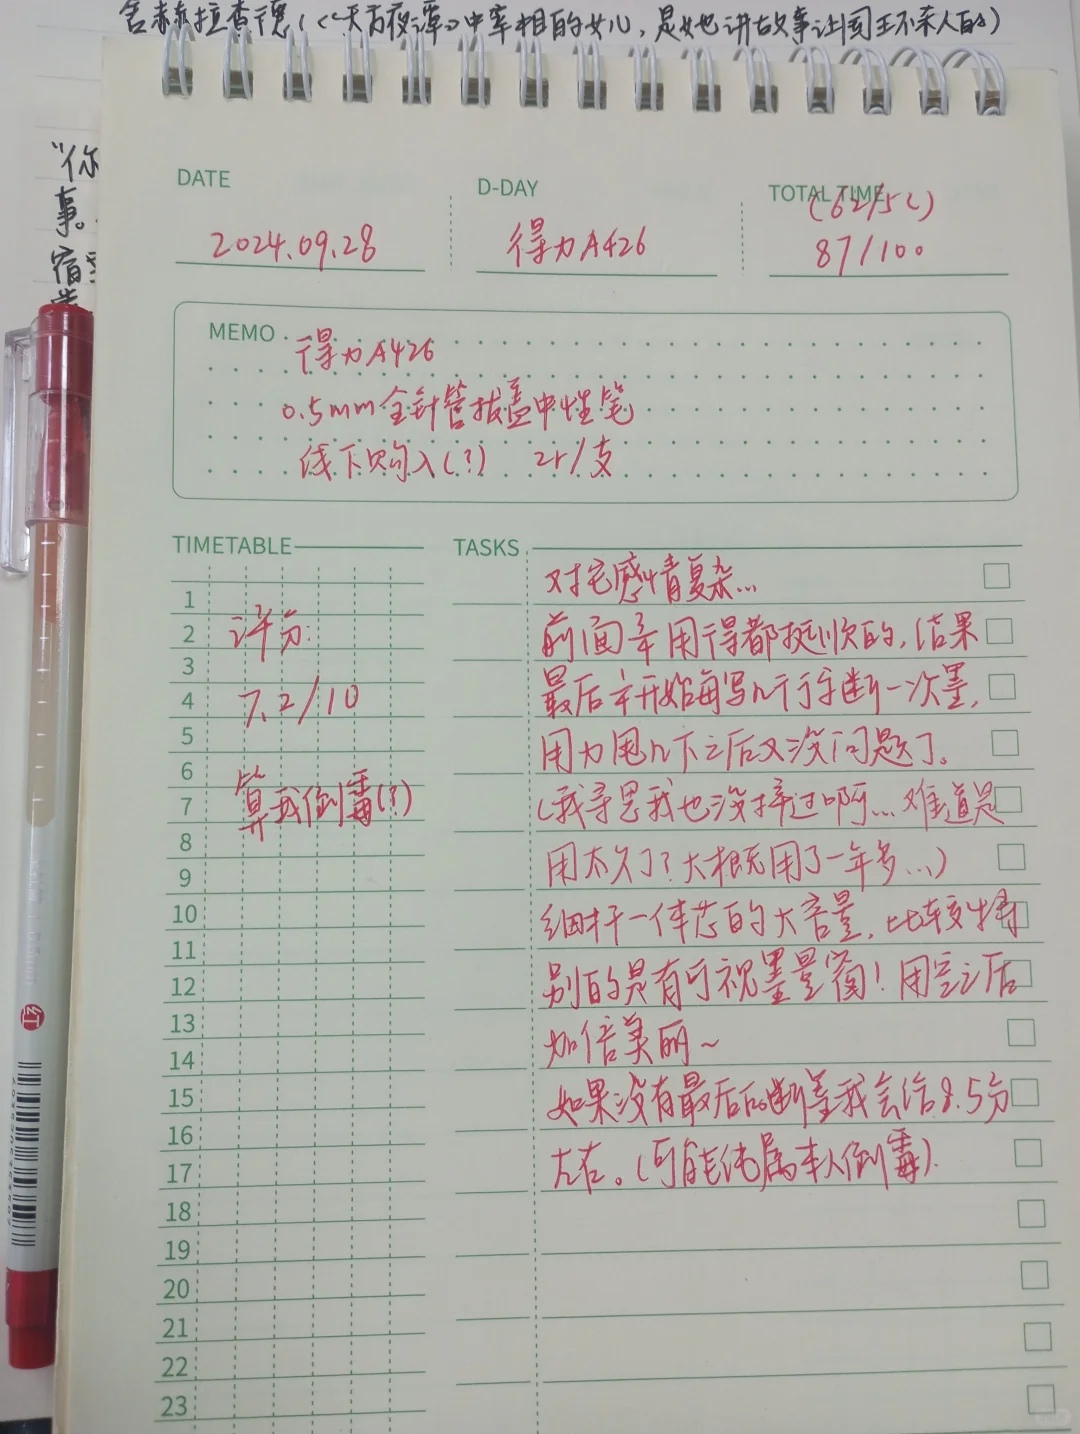 舍赫拉查德(《天方夜谭》中宰相的女儿，是她讲故事让国王不杀人的)
"你
事。
宿
DATE
D-DAY
TOTAL TIME
2024.09.28
得力A426
87/100
MEMO
得力A426
0.5mm全针管拔盖中性笔
线下购入(?) 2r/支
TIMETABLE
TASKS
1
2
3
4
5
6
7
8
9
10
11
12
13
14
15
16
17
18
19
20
21
22
23
评分:
7.2/10
算我倒霉(?)
对它感情复杂...
前面率用得都挺顺的,结果
最后却开始每写几行字断一次墨,
用力甩几下之后又没问题了。
(我寻思我也没摔过啊...难道是
用太久了?大概无用了一年多...)
细杆一体芯的大容量,比较特
别的是有可视墨量窗!用空之后
加倍美丽~
如果没有最后的断墨我会给8.5分
左右。(可能纯属本人倒霉)
红